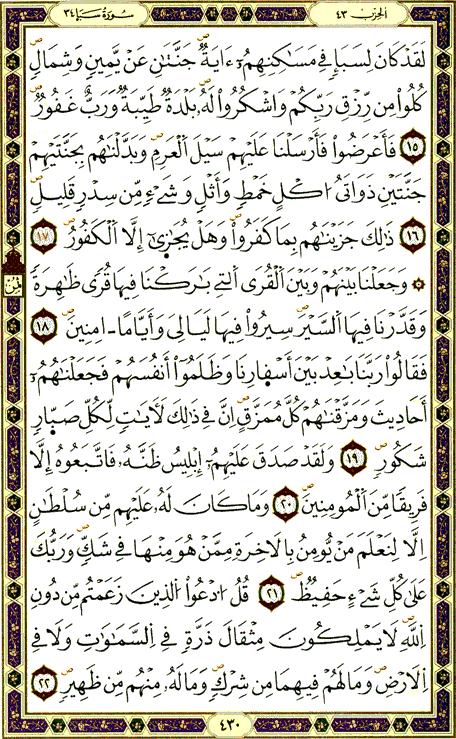 الحزب ٤٣
سورة سبإ ٣٤
لَقَدْ كَانَ لِسَبَإٍ فِي مَسَٰكِنِهِمُۥٓ ءَايَةٌ جَنَّتَٰنِ عَنْ يَّمِينٍ وَشِمَالٍ
كُلُواْ مِن رِّزْقِ رَبِّكُمْ وَاشْكُرُواْ لَهُۥ بَلْدَةٌ طَيِّبَةٌ وَرَبٌّ غَفُورٌ
١٥ فَأَعْرَضُواْ فَأَرْسَلْنَا عَلَيْهِمْ سَيْلَ اَلْعَرِمِ وَبَدَّلْنَٰهُم بِجَنَّتَيْهِمْ
جَنَّتَيْنِ ذَوَاتَيُ ا۟كْلٍ خَمْطٍ وَأَثْلٍ وَشَيْءٍ مِّن سِدْرٍ قَلِيلٍ
١٦ ذَٰلِكَ جَزَيْنَٰهُم بِمَا كَفَرُواْ وَهَلْ يُجَٰزَىٰٓ إِلَّا اَلْكَفُورُ ١٧
۞ وَجَعَلْنَا بَيْنَهُمْ وَبَيْنَ اَلْقُرَى اَلتِے بَٰرَكْنَا فِيهَا قُرىً ظَٰهِرَةً
وَقَدَّرْنَا فِيهَا اَلسَّيْرَ سِيرُواْ فِيهَا لَيَالِيَ وَأَيَّاماً اٰمِنِينَ ١٨
فَقَالُواْ رَبَّنَا بَٰعِدْ بَيْنَ أَسْفَارِنَا وَظَلَمُواْ أَنفُسَهُمْ فَجَعَلْنَٰهُمُۥٓ
أَحَادِيثَ وَمَزَّقْنَٰهُمْ كُلَّ مُمَزَّقٍ اِنَّ فِي ذَٰلِكَ لَأٓيَٰتٍ لِّكُلِّ صَبَّارٍ
شَكُورٍ ١٩ وَلَقَدْ صَدَقَ عَلَيْهِمُۥٓ إِبْلِيسُ ظَنَّهُۥ فَاتَّبَعُوهُ إِلَّا
فَرِيقاً مِّنَ اَلْمُومِنِينَ ٢٠ وَمَا كَانَ لَهُۥ عَلَيْهِم مِّن سُلْطَٰنٍ
اِلَّا لِنَعْلَمَ مَنْ يُّومِنُ بِالَاخِرَةِ مِمَّنْ هُوَ مِنْهَا فِي شَكٍّ وَرَبُّكَ
عَلَىٰ كُلِّ شَيْءٍ حَفِيظٌ ٢١ قُلُ ادْعُواْ اَلذِينَ زَعَمْتُم مِّن دُونِ
اِللَّهِ لَا يَمْلِكُونَ مِثْقَالَ ذَرَّةٍ فِي اِلسَّمَٰوَٰتِ وَلَا فِي
اِلَارْضِ وَمَا لَهُمْ فِيهِمَا مِن شِرْكٍ وَمَا لَهُۥ مِنْهُم مِّن ظَهِيرٍ ٢٢
ثمن
٤٣٠